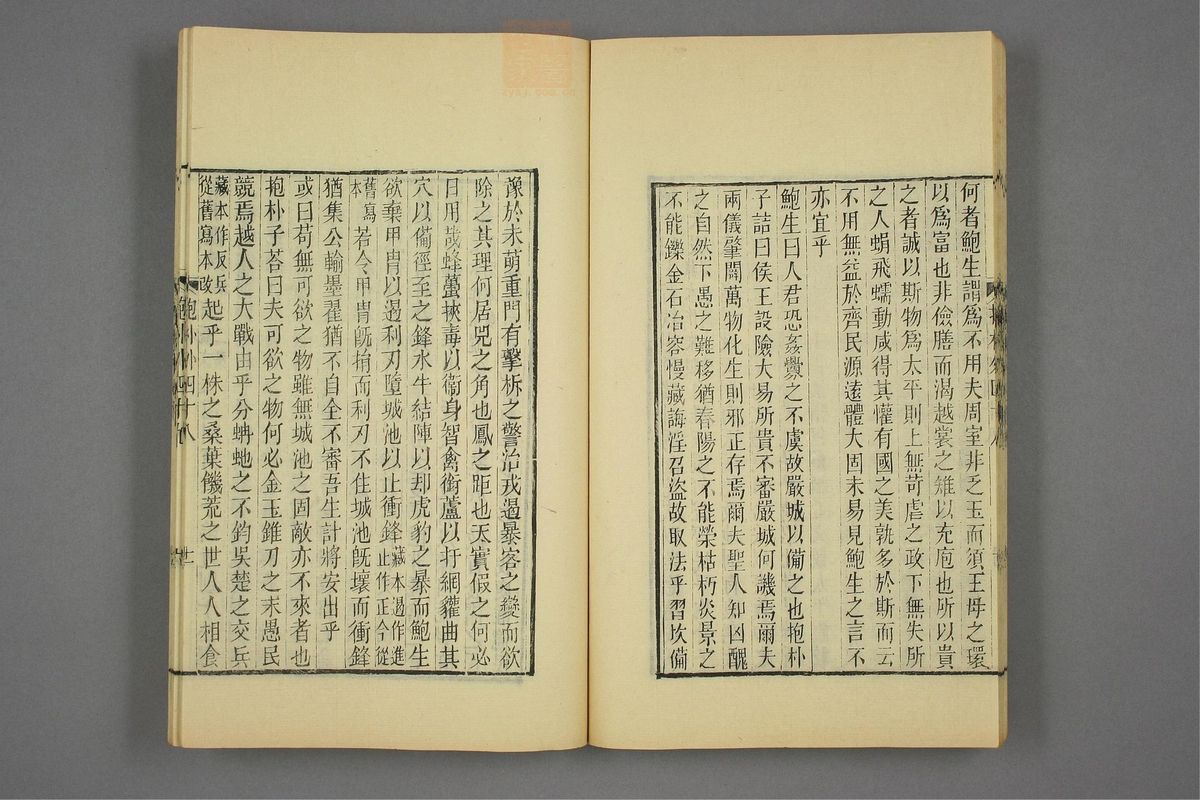 何者鮑生謂爲不用夫周室非乏玉而須王母之環
以爲富也非儉膳而渴越裳之雉以充庖也所以貴
之者誠以斯物爲太平則上無苛虐之政下無失所
之人蜎飛蠕動咸得其懽有國之美孰多於斯而云
不用無益於齊民源遠體大固未易見鮑生之言不
亦宜乎
鮑生曰人君恐姦釁之不虞故嚴城以備之也抱朴
子詰曰侯王設險大易所貴不審嚴城何譏焉爾夫
兩儀肇闢萬物化生則邪正存焉爾夫聖人知凶醜
之自然下愚之難移猶春陽之不能榮枯朽炎景之
不能鑠金石冶容慢藏誨淫召盜故取法乎習坎備
豫於未萌重門有擊柝之警治戎遏暴客之變而欲
除之其理何居兕之角也鳳之距也天實假之何必
日用哉蜂蠆挾毒以衞身智禽銜蘆以扞網貛曲其
穴以備徑至之鋒水牛結陣以却虎豹之暴而鮑生
欲棄甲冑以遏利刃墮城池以止衝鋒藏本遏作進止作正今從
舊寫本若令甲冑旣捐而利刃不住城池旣壞而衝鋒
猶集公輸墨翟猶不自全不審吾生計將安出乎
或曰苟無可欲之物雖無城池之固敵亦不來者也
抱朴子荅曰夫可欲之物何必金玉錐刀之末愚民
競焉越人之大戰由乎分蚺虵之不鈞吳楚之交兵
藏本作反兵從舊寫本改起乎一株之桑葉饑荒之世人人相食
鮑朴外四十八